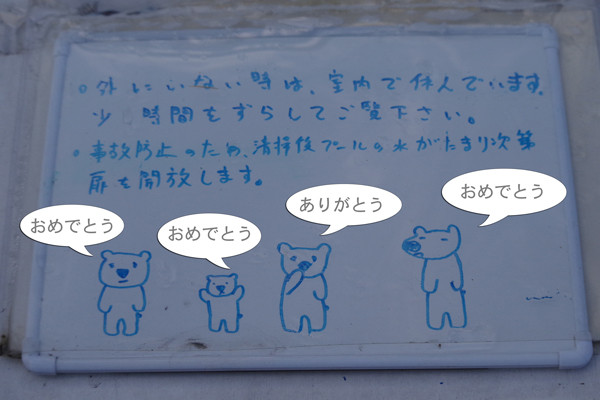 。外にいない時は、室内で休んでいます。
少し時間をずらしてご覧下さい。
。事故防止のため、清掃後プールの水がたまり次第
扉を開放します。
おめでとう
おめでとう
ありがとう
おめでとう